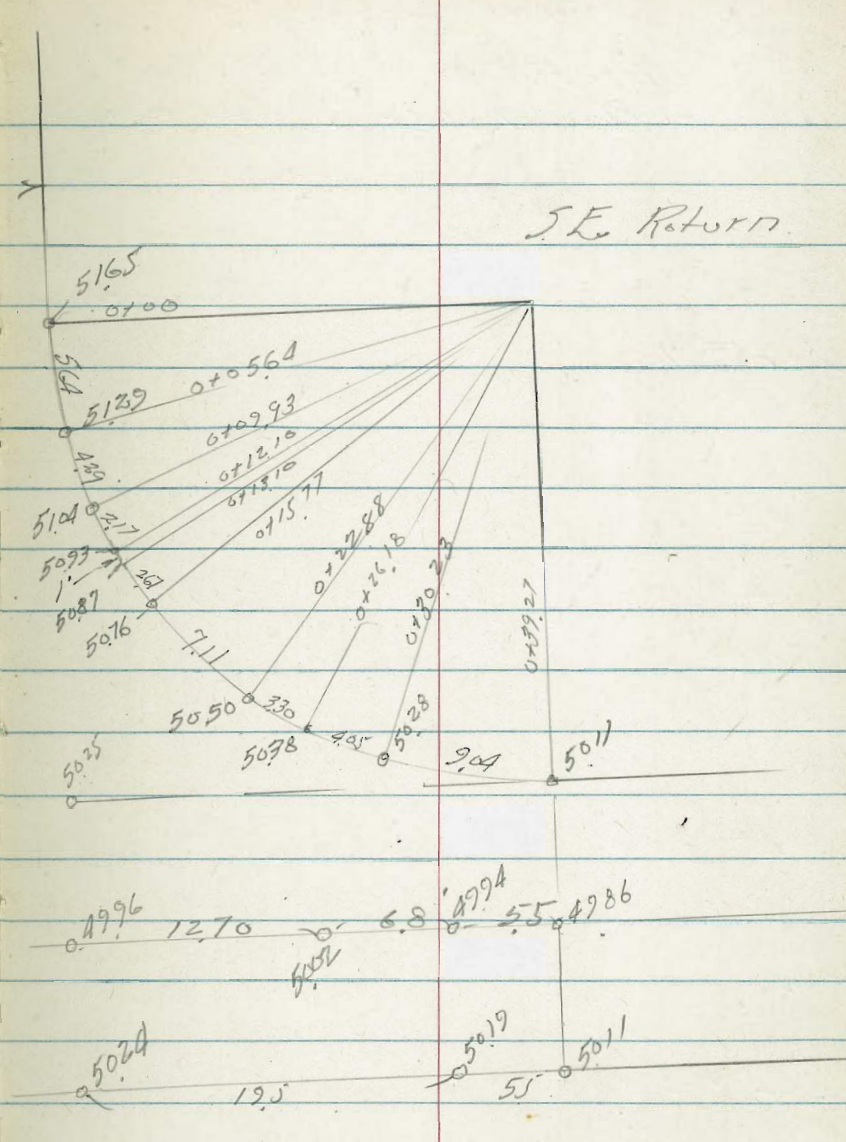 S.E. Return
51.65
0+00
5.64
51.29
0+05.64
4.29
0+09.93
51.04
2.17
0+12.10
50.93
0+13.10
1.
50.87
2.67
0+15.77
50.76
7.11
0+22.88
50.50
3.30
0+26.18
50.38
4.05
0+30.23
50.28
9.04
0+39.27
50.11
50.25
49.96
12.70
50.02
6.8
49.94
5.5
49.86
50.24
19.5
50.19
5.5
50.11